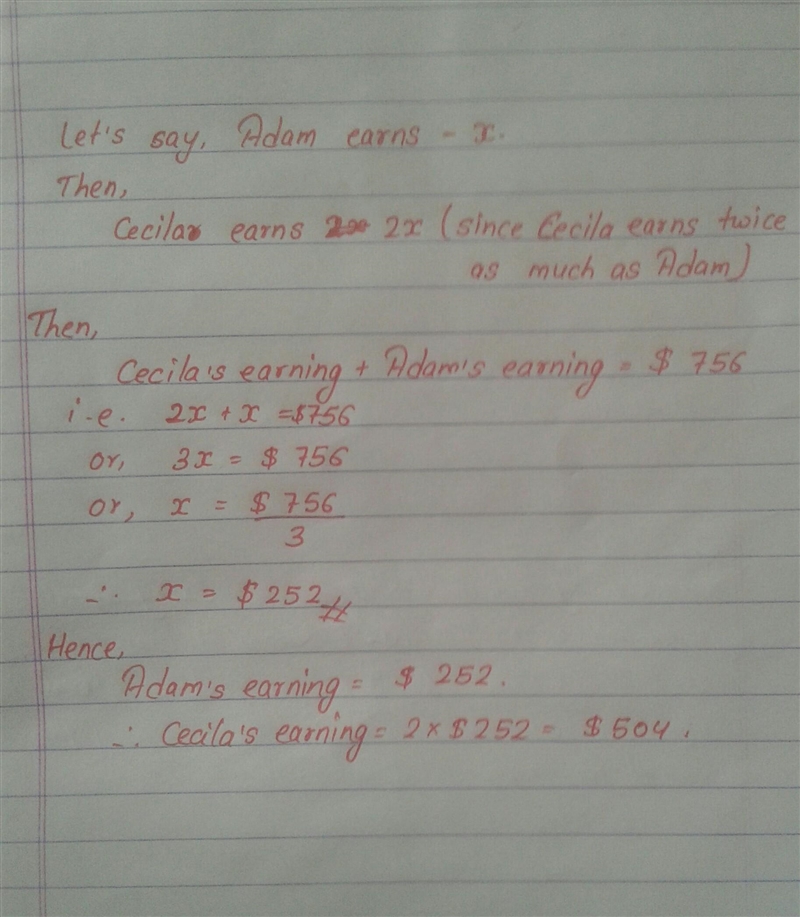 Let's say, Adam earns - x.
Then,
Cecila earns 2x (since Cecila earns twice
as much as Adam)
Then,
Cecila's earning + Adam's earning = $ 756
i.e. 2x + x = $756
or, 3x = $ 756
or, x = $ 756
3
∴ x = $ 252
Hence,
Adam's earning = $ 252.
∴ Cecila's earning = 2 × $ 252 = $ 504.